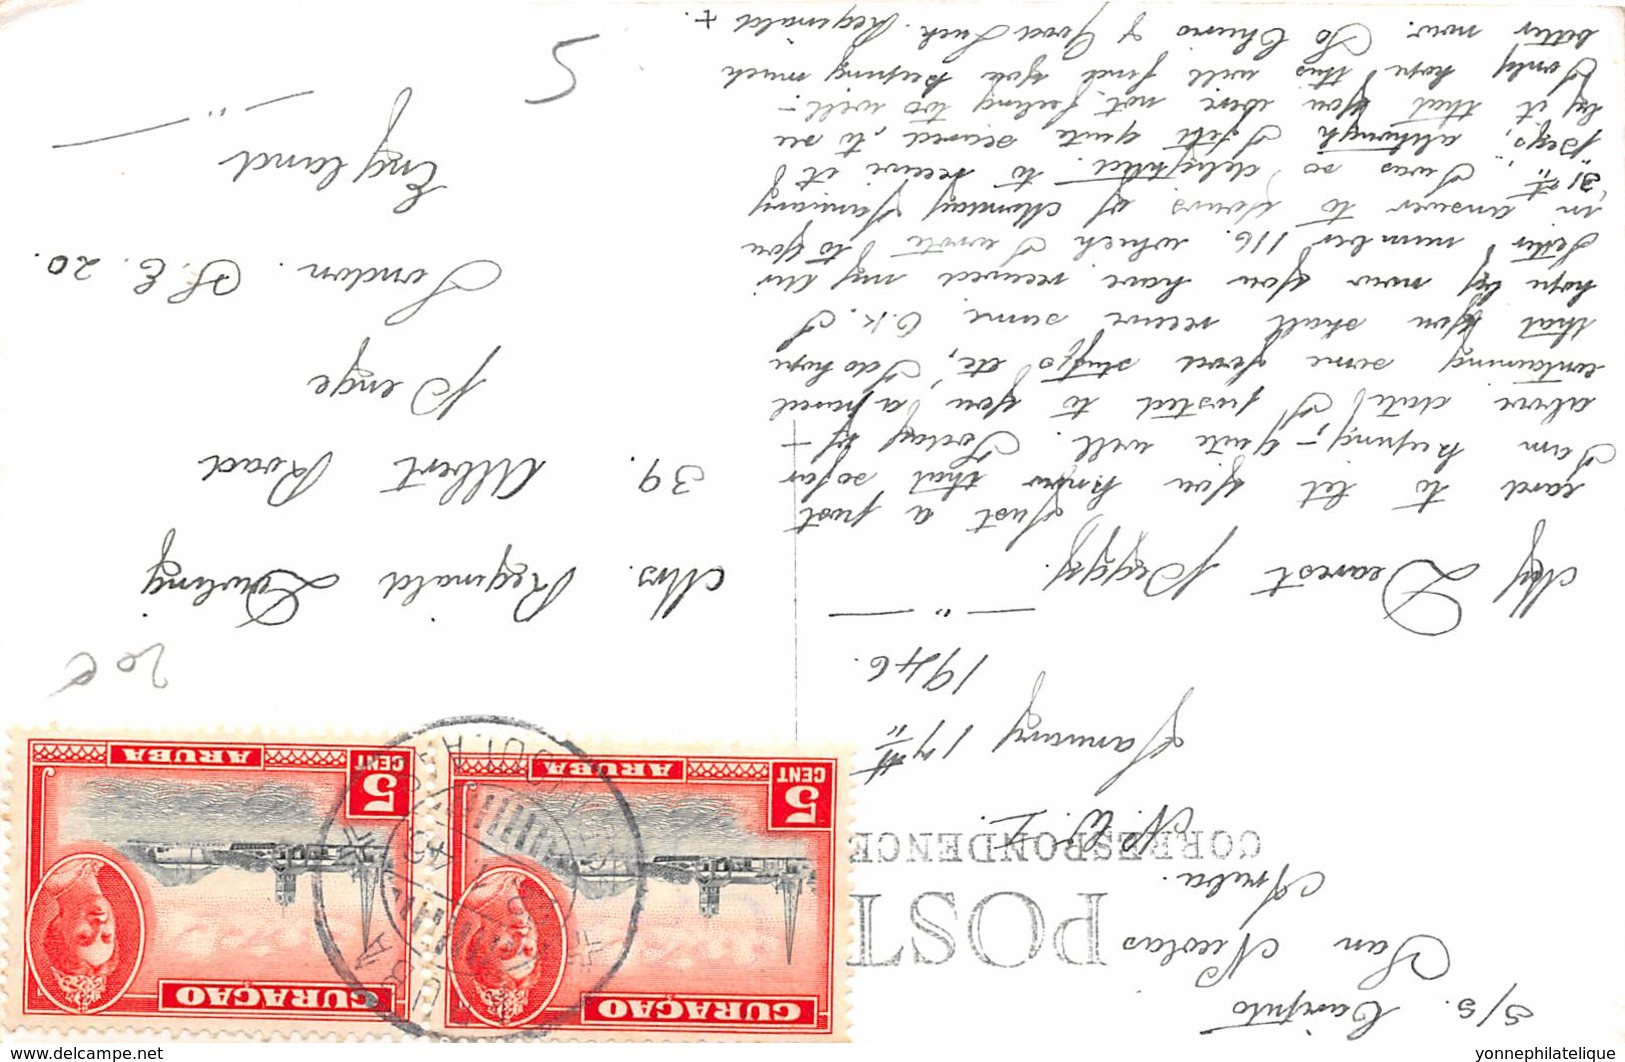 S/S. Caripito
San Nicolas
Aruba.
N. W. I.
January 17th
1946.
POST
CORRESPONDENCE
My Dearest Peggy.
Just a post
card to let you know that so far
I am keeping quite well. Today by
above date I posted to you a parcel
containing some food stuffs etc, I do hope
that you shall receive same O.K. I
hope by now you have received my air
letter number 116. which I wrote to you
in answer to yours of Monday January
"31st". I was so delighted to receive it
Pegs, although I felt quite scared to see
by it that you were not feeling too well.-
I only hope this will find you keeping much
better now. So Cheerio & Good Luck. Reginald +
Mrs. Reginald Dowling
39. Albert Road
Penge
London. S.E. 20.
England
5
20c
CURAÇAO
5
CENT
ARUBA
CURAÇAO
5
CENT
ARUBA
yonnephilatelique
delcampe.net